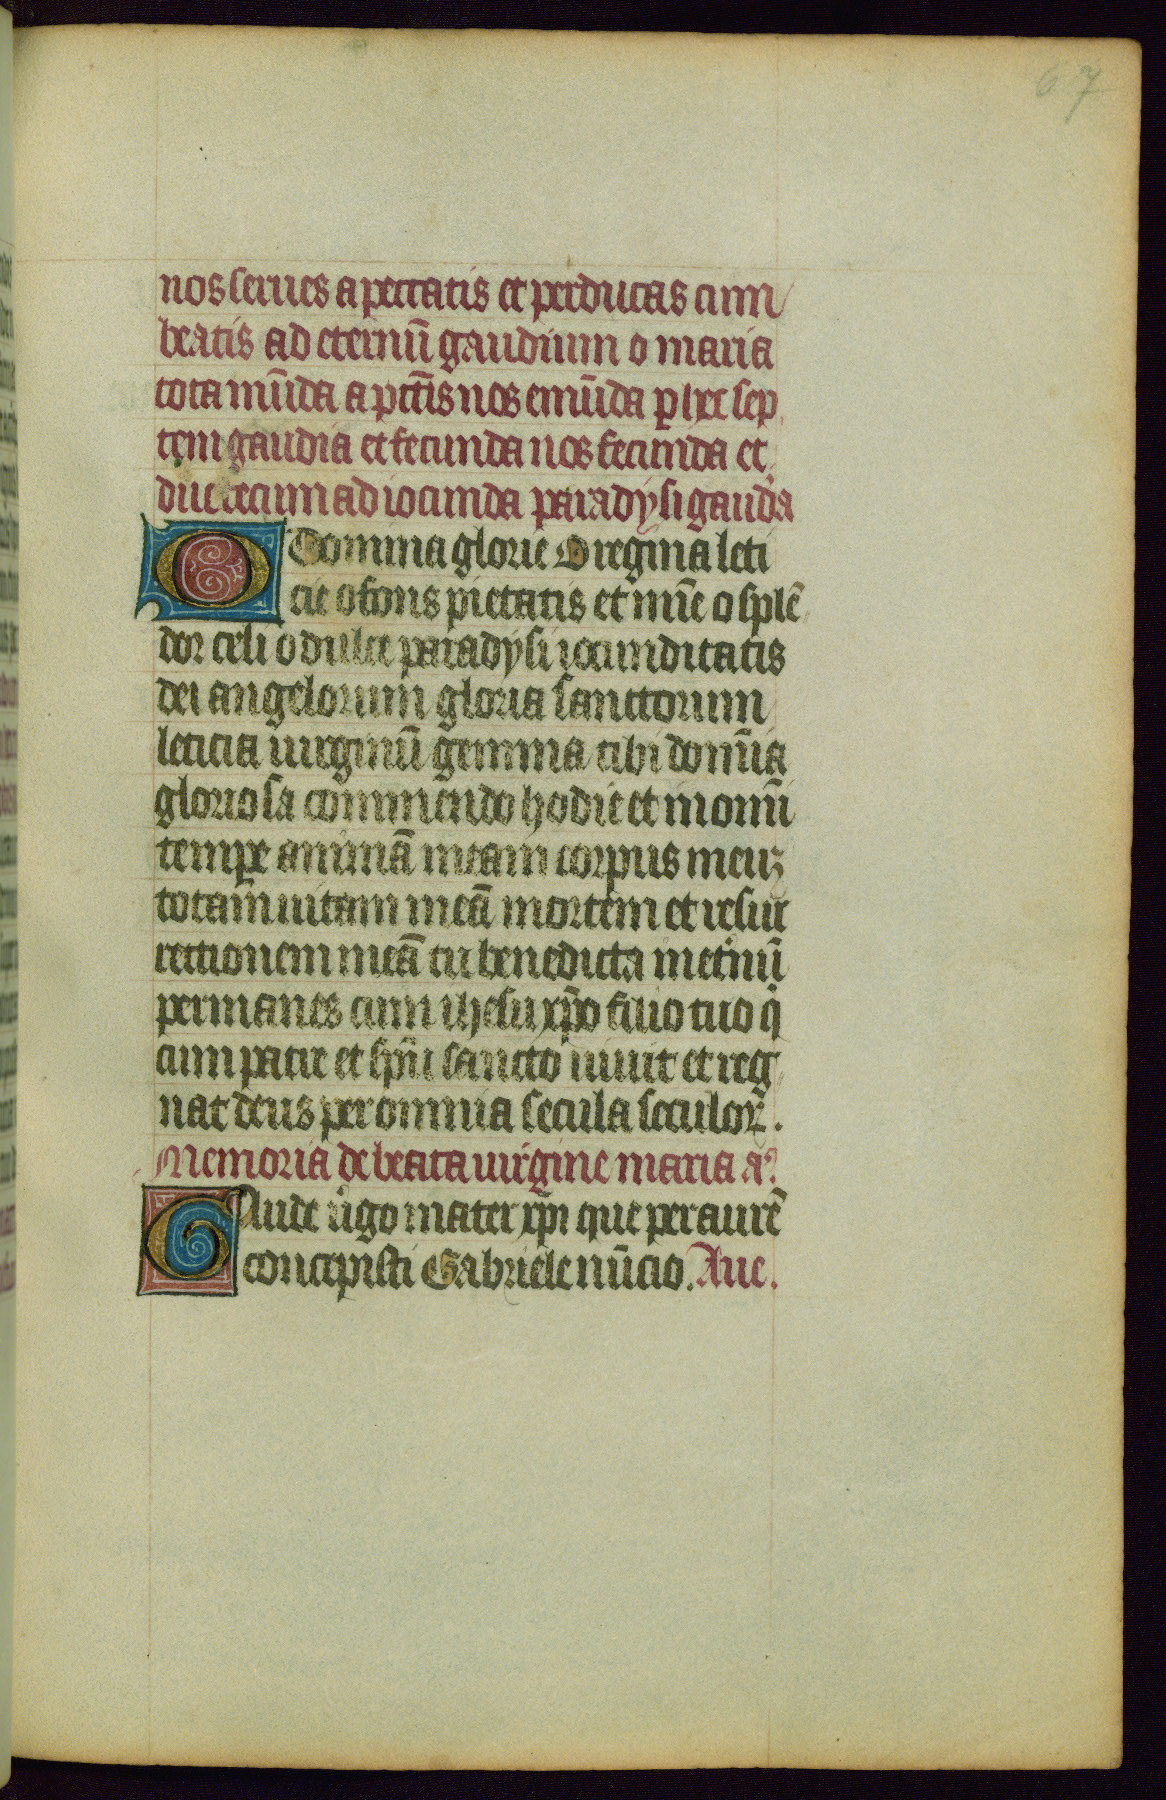 67
nos serues a peccatis et perducas cum
beatis ad eternū gaudium o maria
tota mūda a pctīs nos emūda p hec sep
tem gaudia et fecunda nos fecunda et
duc tecum ad iocunda paradysi gaudia
O Domina glorie O regina leti
cie o fons pietatis et mīe o splē
dor celi o dulce paradysi iocunditatis
dei angelorum gloria sanctorum
leticia uirginū gemma tibi domīa
gloriosa commendo hodie et in omī
tempe animā meam corpus meuz
totam uitam meā mortem et resur
rectionem meā tu benedicta inetnū
permanes cum ihesu xpo filio tuo q
cum patre et spu sancto uiuit et reg
nat deus per omnia secula seculoꝝ.
Memoria de beata uirgine maria a
Gaude uirgo mater xpi que per aurē
concepisti Gabriele nūcio. Aue.